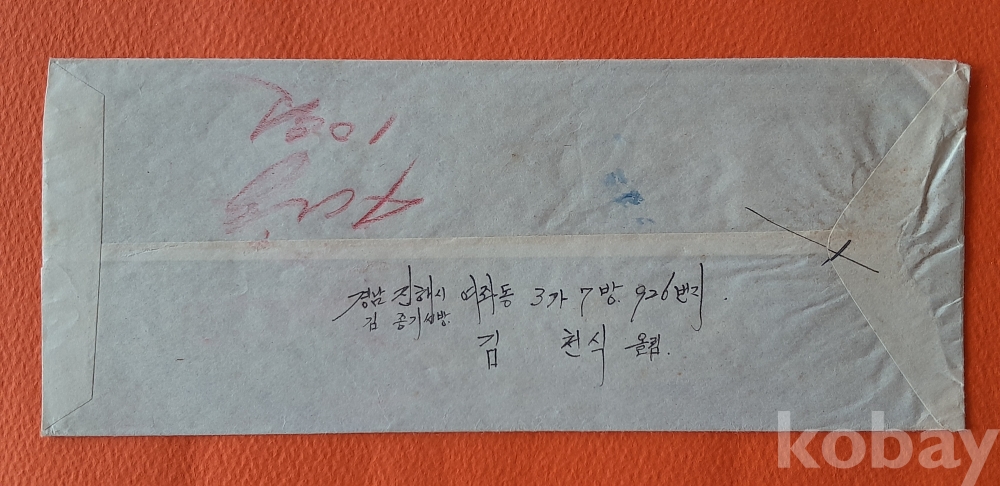 경남 진해시 여좌동 3가 7방 926번지.
김 종기 씨방
김 천식 올림.
kobay